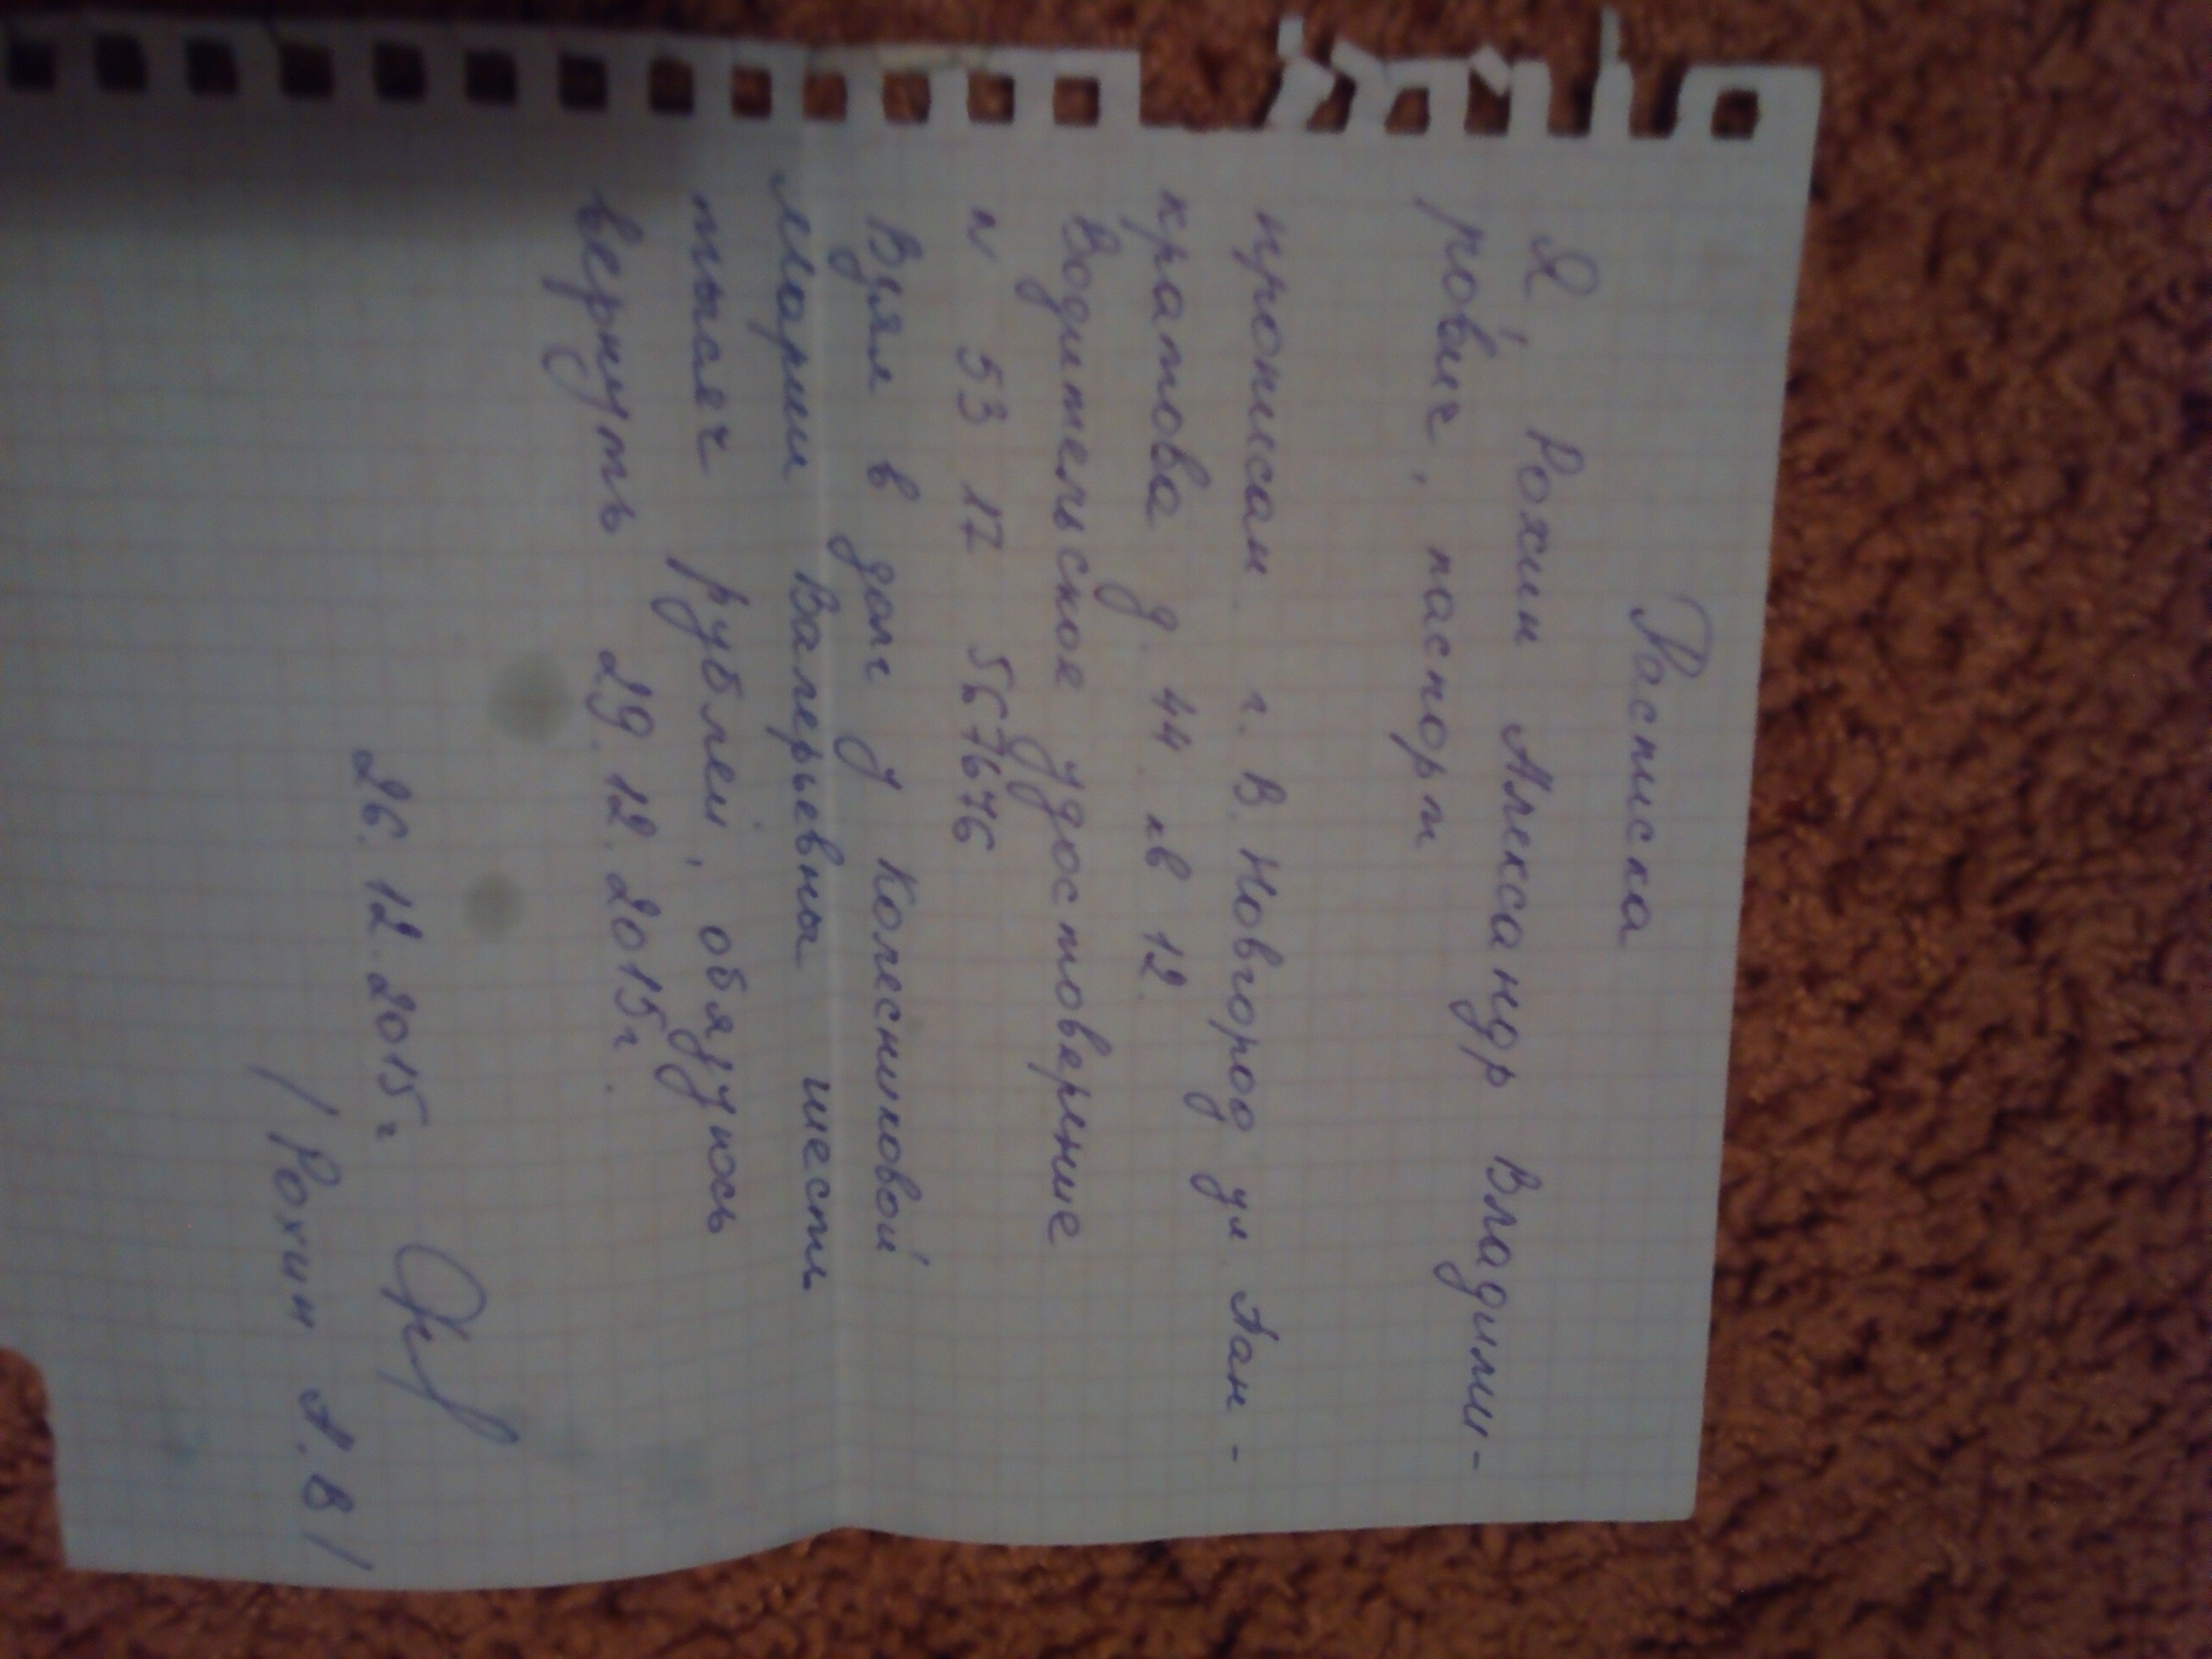 Расписка
Я, Рохин Александр Владими-
рович, паспорт
прописан г. В. Новгород ул. Пан-
кратова д. 44 кв 12.
Водительское удостоверение
N 53 17 567676
Взял в долг у Колесниковой
Марии Валерьевны шесть
тысяч рублей, обязуюсь
вернуть 29.12.2015г.
26.12.2015г
/ Рохин А.В /